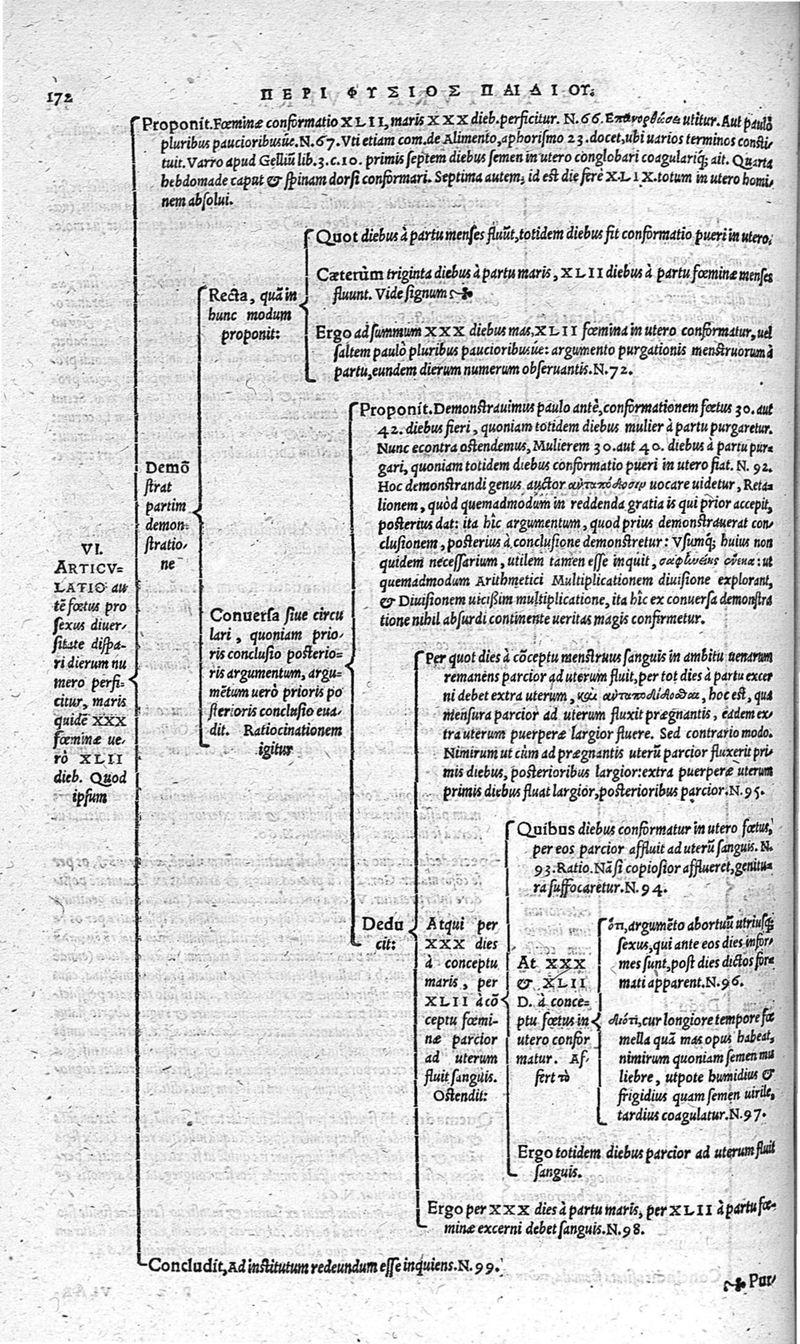 172
ΠΕΡΙ ΦΥΣΙΟΣ ΠΑΙΔΙΟΥ.
Proponit. Fœminæ conformatio XLII, maris XXX dieb. perficitur. N. 66. Ἐπανορθώσει utitur. Aut paulò
pluribus paucioribusúe. N. 67. Vti etiam com. de Alimento, aphorismo 23. docet, ubi uarios terminos consti-
tuit. Varro apud Gelliũ lib. 3. c. 10. primis septem diebus semen in utero conglobari coagulariq; ait. Quarta
hebdomade caput & spinam dorsi conformari. Septima autem, id est die ferè XLIX. totum in utero homi-
nem absolui.
Quot diebus à partu menses fluũt, totidem diebus fit conformatio pueri in utero.
Cæterùm triginta diebus à partu maris, XLII diebus à partu fœminæ menses
fluunt. Vide signum ☙
Ergo ad summum XXX diebus mas, XLII fœmina in utero conformatur, uel
saltem paulò pluribus paucioribusúe: argumento purgationis menstruorum à
partu, eundem dierum numerum obseruantis. N. 72.
Recta, quã in
hunc modum
proponit:
Proponit. Demonstrauimus paulo antè, conformationem fœtus 30. aut
42. diebus fieri, quoniam totidem diebus mulier à partu purgaretur.
Nunc econtra ostendemus, Mulierem 30. aut 40. diebus à partu pur-
gari, quoniam totidem diebus conformatio pueri in utero fiat. N. 92.
Hoc demonstrandi genus auctor ἀνταπόδοσιν uocare uidetur, Reta-
lionem, quòd quemadmodum in reddenda gratia is qui prior accepit,
posterius dat: ita hîc argumentum, quod prius demonstrauerat con-
clusionem, posterius à conclusione demonstretur: Vsumq; huius non
quidem necessarium, utilem tamen esse inquit, σαφηνείης εἵνεκα: ut
quemadmodum Arithmetici Multiplicationem diuisione explorant,
& Diuisionem uicißim multiplicatione, ita hîc ex conuersa demonstra
tione nihil absurdi continente ueritas magis confirmetur.
Demõ
strat
partim
demon-
stratio-
ne
VI.
ARTICV-
LATIO au-
tẽ fœtus pro
sexus diuer-
sitate dispa-
ri dierum nu
mero perfi-
citur, maris
quidẽ XXX
fœminæ ue-
rò XLII
dieb. Quod
ipsum
Conuersa siue circu
lari, quoniam prio-
ris conclusio posterio-
ris argumentum, argu-
mẽtum uerò prioris po
sterioris conclusio eua-
dit. Ratiocinationem
igitur
Per quot dies à cõceptu menstruus sanguis in ambitu uenarum
remanens parcior ad uterum fluit, per tot dies à partu excer
ni debet extra uterum, καὶ ἀνταποδίδοσθαι, hoc est, qua
mensura parcior ad uterum fluxit prægnantis, eadem ex-
tra uterum puerperæ largior fluere. Sed contrario modo.
Nimirum ut cùm ad prægnantis uterũ parcior fluxerit pri-
mis diebus, posterioribus largior: extra puerperæ uterum
primis diebus fluat largior, posterioribus parcior. N. 95.
Quibus diebus conformatur in utero fœtus,
per eos parcior affluit ad uterũ sanguis. N.
93. Ratio. Nã si copiosior afflueret, genitu-
ra suffocaretur. N. 94.
Dedu
cit:
Atqui per
XXX dies
à conceptu
maris, per
XLII à cõ-
ceptu fœmi-
næ parcior
ad uterum
fluit sanguis.
Ostendit:
At XXX
& XLII
D. à conce-
ptu fœtus in
utero confor
matur. Af-
fert τὸ
ὅτι, argumẽto abortuũ utriusq;
sexus, qui ante eos dies infor-
mes sunt, post dies dictos for-
mati apparent. N. 96.
διότι, cur longiore tempore fœ
mella quã mas opus habeat,
nimirum quoniam semen mu
liebre, utpote humidius &
frigidius quam semen uirile,
tardius coagulatur. N. 97.
Ergo totidem diebus parcior ad uterum fluit
sanguis.
Ergo per XXX dies à partu maris, per XLII à partu fœ-
minæ excerni debet sanguis. N. 98.
Concludit, Ad institutum redeundum esse inquiens. N. 99.
☙ Pur-